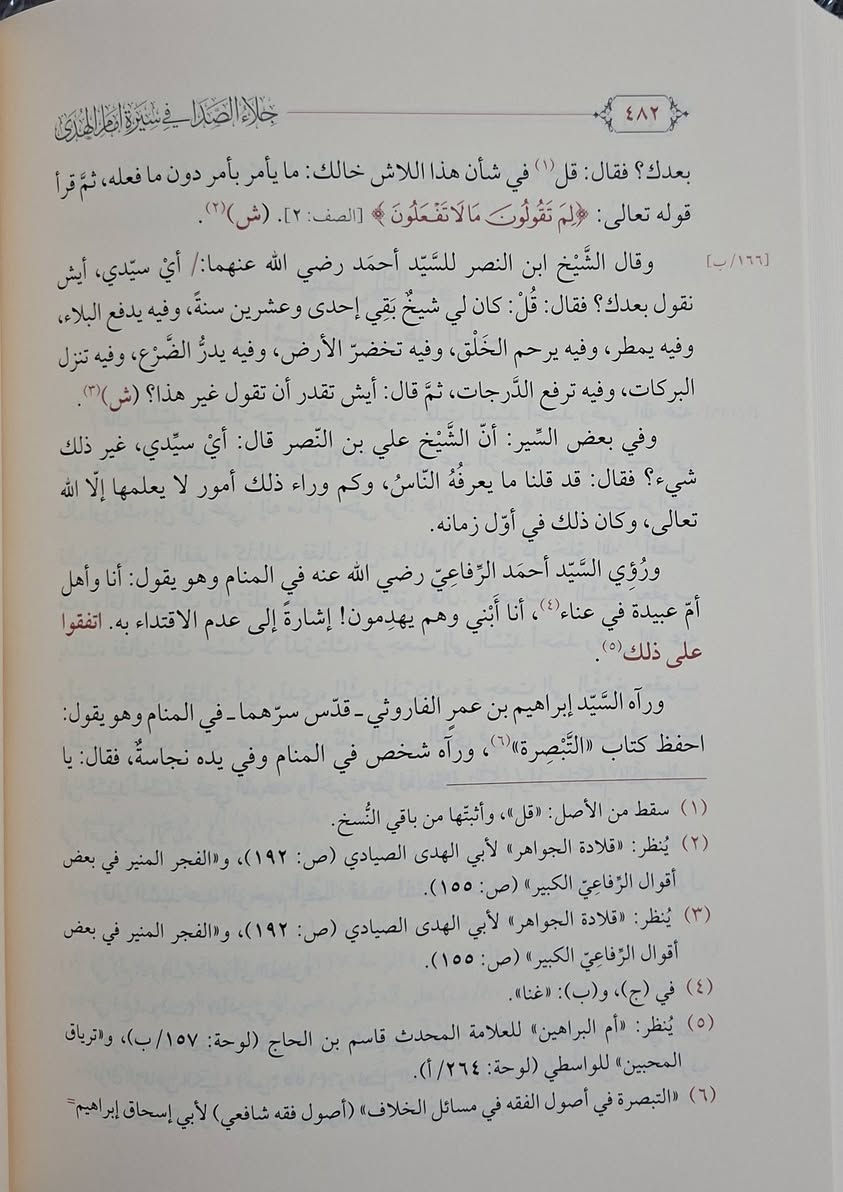 ٤٨٢
جلاء الصدا في سيرة إمام الهدى
بعدك؟ فقال: قل(١) في شأن هذا اللاش خالك: ما يأمر بأمر دون ما فعله، ثمَّ قرأ
قوله تعالى: ﴿لِمَ تَقُولُونَ مَا لَا تَفْعَلُونَ﴾ [الصف: ٢]. (ش)(٢).
وقال الشَّيْخ ابن النصر للسَّيّد أحمَد رضي الله عنهما:/ أيْ سيّدي، أيش
[١٦٦/ب]
نقول بعدك؟ فقال: قُلْ: كان لي شيخٌ بَقِي إحدى وعشرين سنةً، وفيه يدفع البلاء،
وفيه يمطر، وفيه يرحم الخَلْق، وفيه تخضرّ الأرض، وفيه يدرُّ الضَّرْع، وفيه تنزل
البركات، وفيه ترفع الدَّرجات، ثمَّ قال: أيش تقدر أن تقول غير هذا؟ (ش)(٣).
وفي بعض السِّير: أنّ الشَّيْخ علي بن النّصر قال: أيْ سيِّدي، غير ذلك
شيء؟ فقال: قد قلنا ما يعرفُهُ النّاسُ، وكم وراء ذلك أمور لا يعلمها إلّا الله
تعالى، وكان ذلك في أوّل زمانه.
ورُؤِي السَّيّد أحمَد الرِّفاعِيّ رضي الله عنه في المنام وهو يقول: أنا وأهل
أمّ عبيدة في عناء(٤)، أنا أَبْني وهم يهدِمون! إشارةً إلى عدم الاقتداء به. اتفقوا
على ذلك(٥).
ورآه السَّيّد إبراهيم بن عمرٍ الفاروثي ـ قدّس سرّهما ـ في المنام وهو يقول:
احفظ كتاب «التَّبْصِرة»(٦)، ورآه شخص في المنام وفي يده نجاسةٌ، فقال: يا
(١) سقط من الأصل: «قل»، وأثبتّها من باقي النُّسخ.
(٢) يُنظر: «قلادة الجواهر» لأبي الهدى الصيادي (ص: ١٩٢)، و«الفجر المنير في بعض
أقوال الرِّفاعِيّ الكبير» (ص: ١٥٥).
(٣) يُنظر: «قلادة الجواهر» لأبي الهدى الصيادي (ص: ١٩٢)، و«الفجر المنير في بعض
أقوال الرِّفاعِيّ الكبير» (ص: ١٥٥).
(٤) في (ج)، و(ب): «غنا».
(٥) يُنظر: «أم البراهين» للعلامة المحدث قاسم بن الحاج (لوحة: ١٥٧/ ب)، و«ترياق
المحبين» للواسطي (لوحة: ٢٦٤/ أ).
(٦) «التبصرة في أصول الفقه في مسائل الخلاف» (أصول فقه شافعي) لأبي إسحاق إبراهيم=